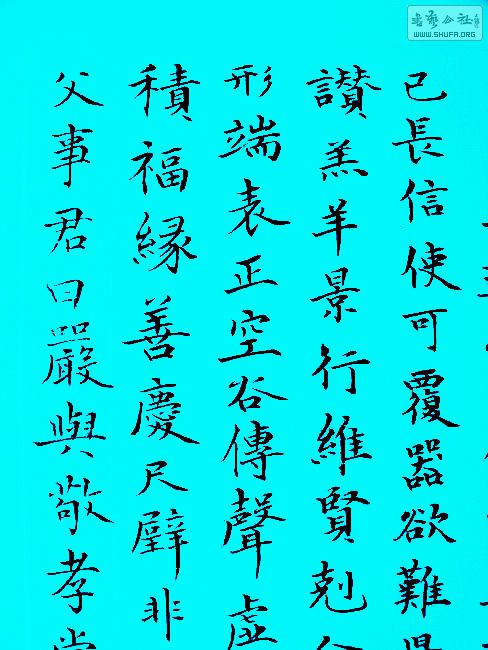 書藝公社
WWW.SHUFA.ORG
己長信使可覆器欲難
讚羔羊景行維賢剋
形端表正空谷傳聲虛
積福緣善慶尺璧非
父事君曰嚴與敬孝當